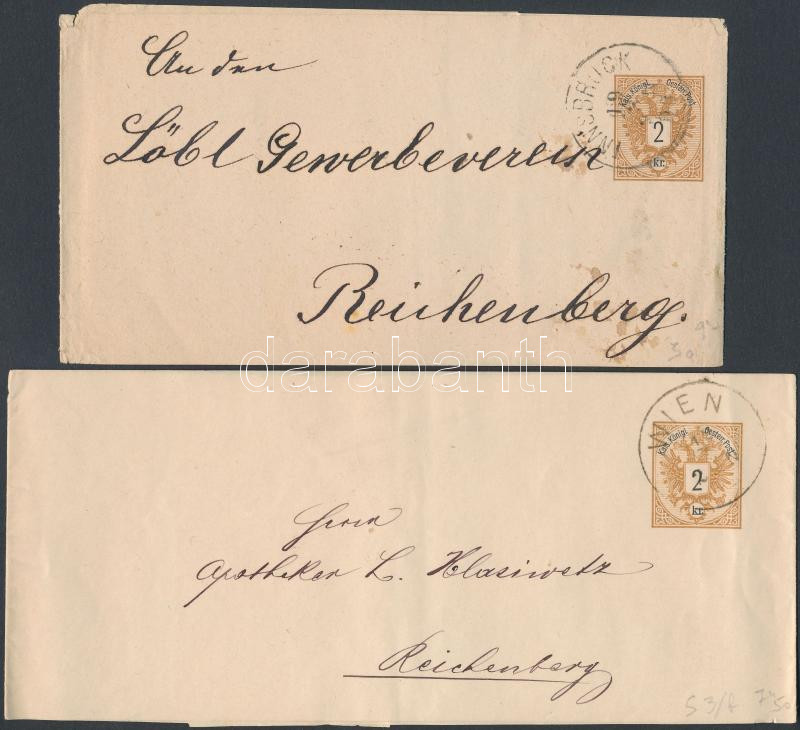 An den
Löbl Gewerbeverein
Reichenberg.
INNSBRUCK
Kais. Königl. Oesterr. Post.
2
kr.
90
50
darabanth
WIEN
Kais. Königl. Oesterr. Post.
2
kr.
Herrn
Apotheker L. Hlasiwetz
Reichenberg
S 3/A
50